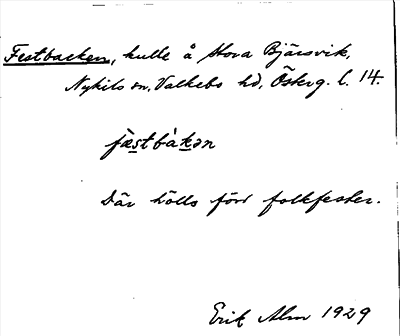 Festbacken, kulle å Stora Bjärsvik,
Nykils sn, Valkebo hd, Österg. l. 14.
fæstbàkən
Där hölls förr folkfester.
Erik Alm 1929